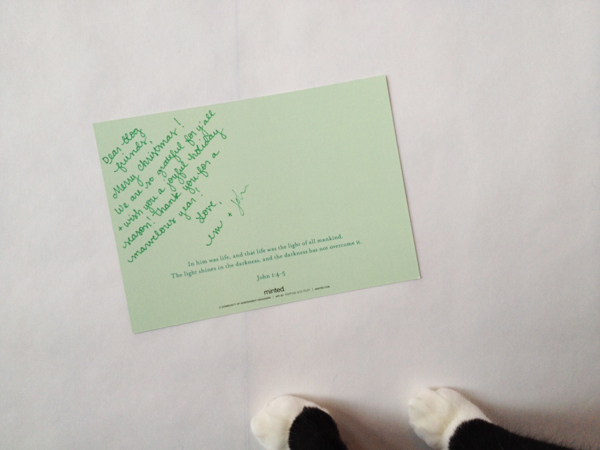 Dear blog
friends,
Merry Christmas!
We are so grateful for y'all
+ wish you a joyful holiday
season! Thank you for a
marvelous year!
Love,
em +
In him was life, and that life was the light of all mankind.
The light shines in the darkness, and the darkness has not overcome it.
John 1:4-5
minted.